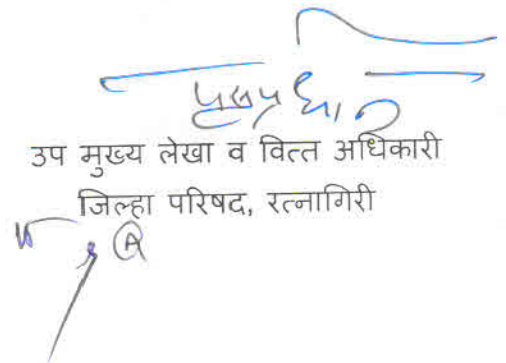 उप मुख्य लेखा व वित्त अधिकारी
जिल्हा परिषद, रत्नागिरी
A